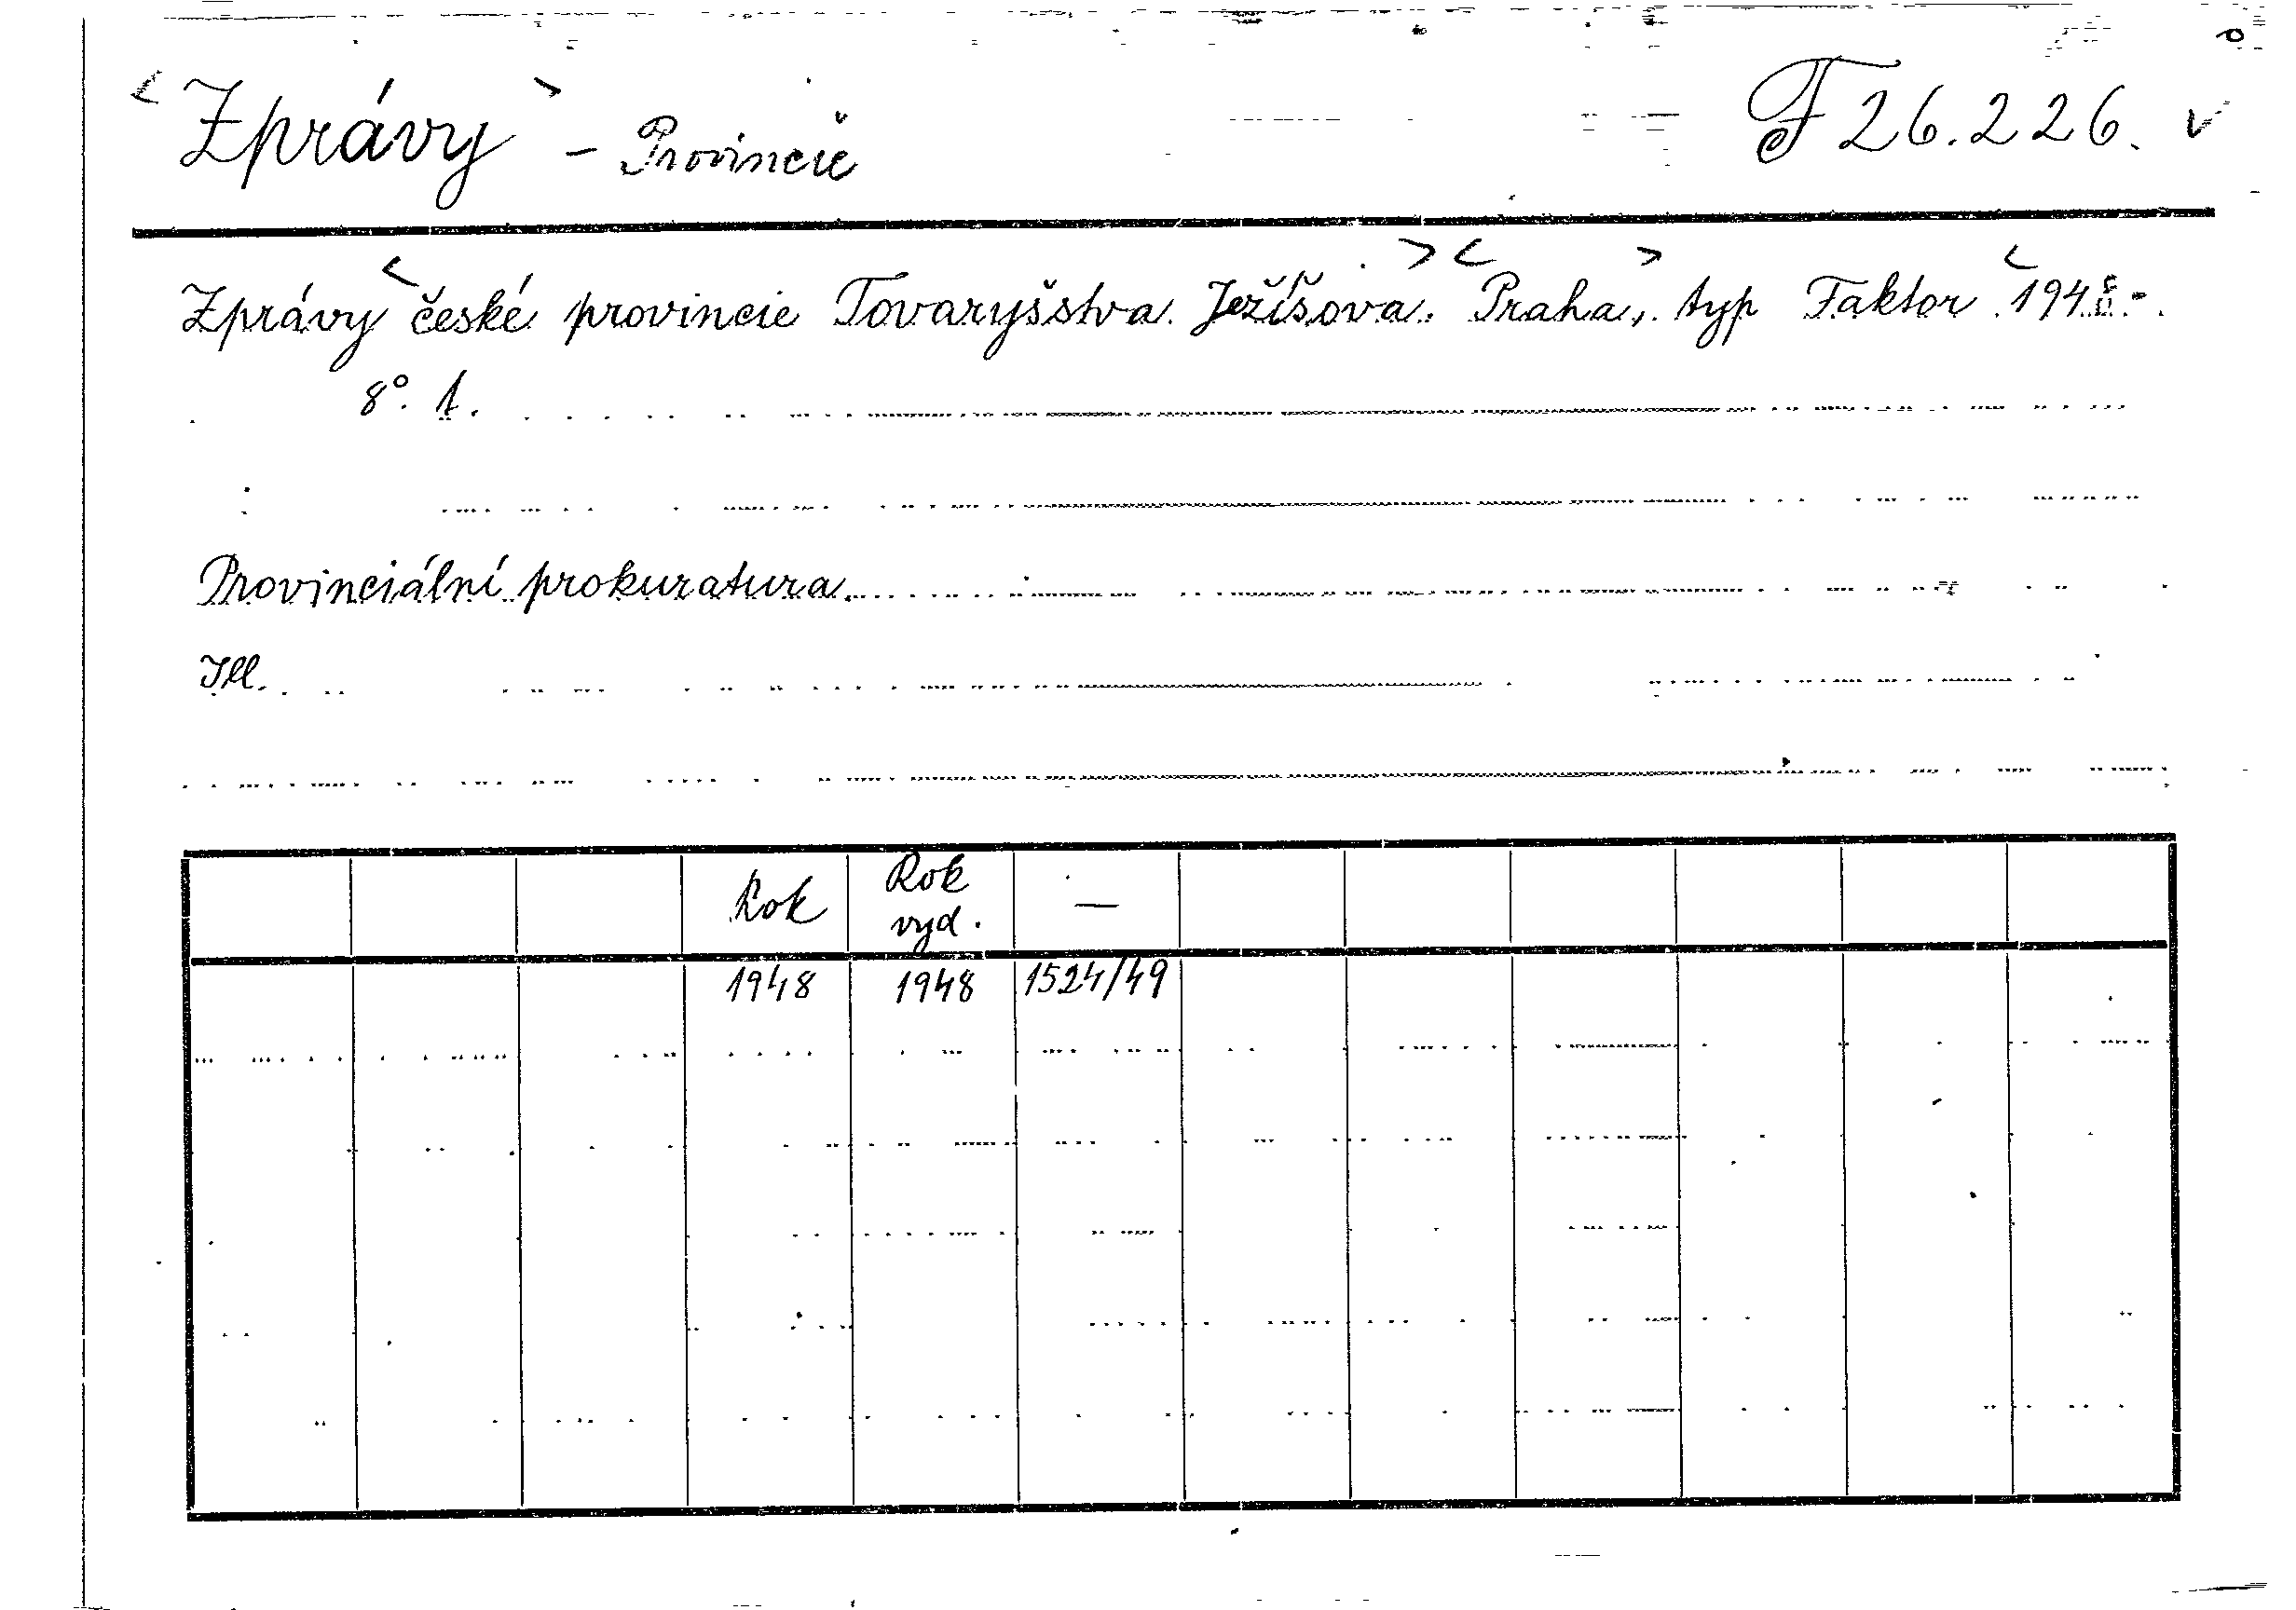 <Zprávy> - Provincie F 26.226. v
Zprávy <české provincie Tovaryšstva Ježíšova.> <Praha,> typ Faktor <1948-.
8°. 1.
Provinciální prokuratura.
Ill.
Rok Rok vyd. —
1948 1948 1524/49